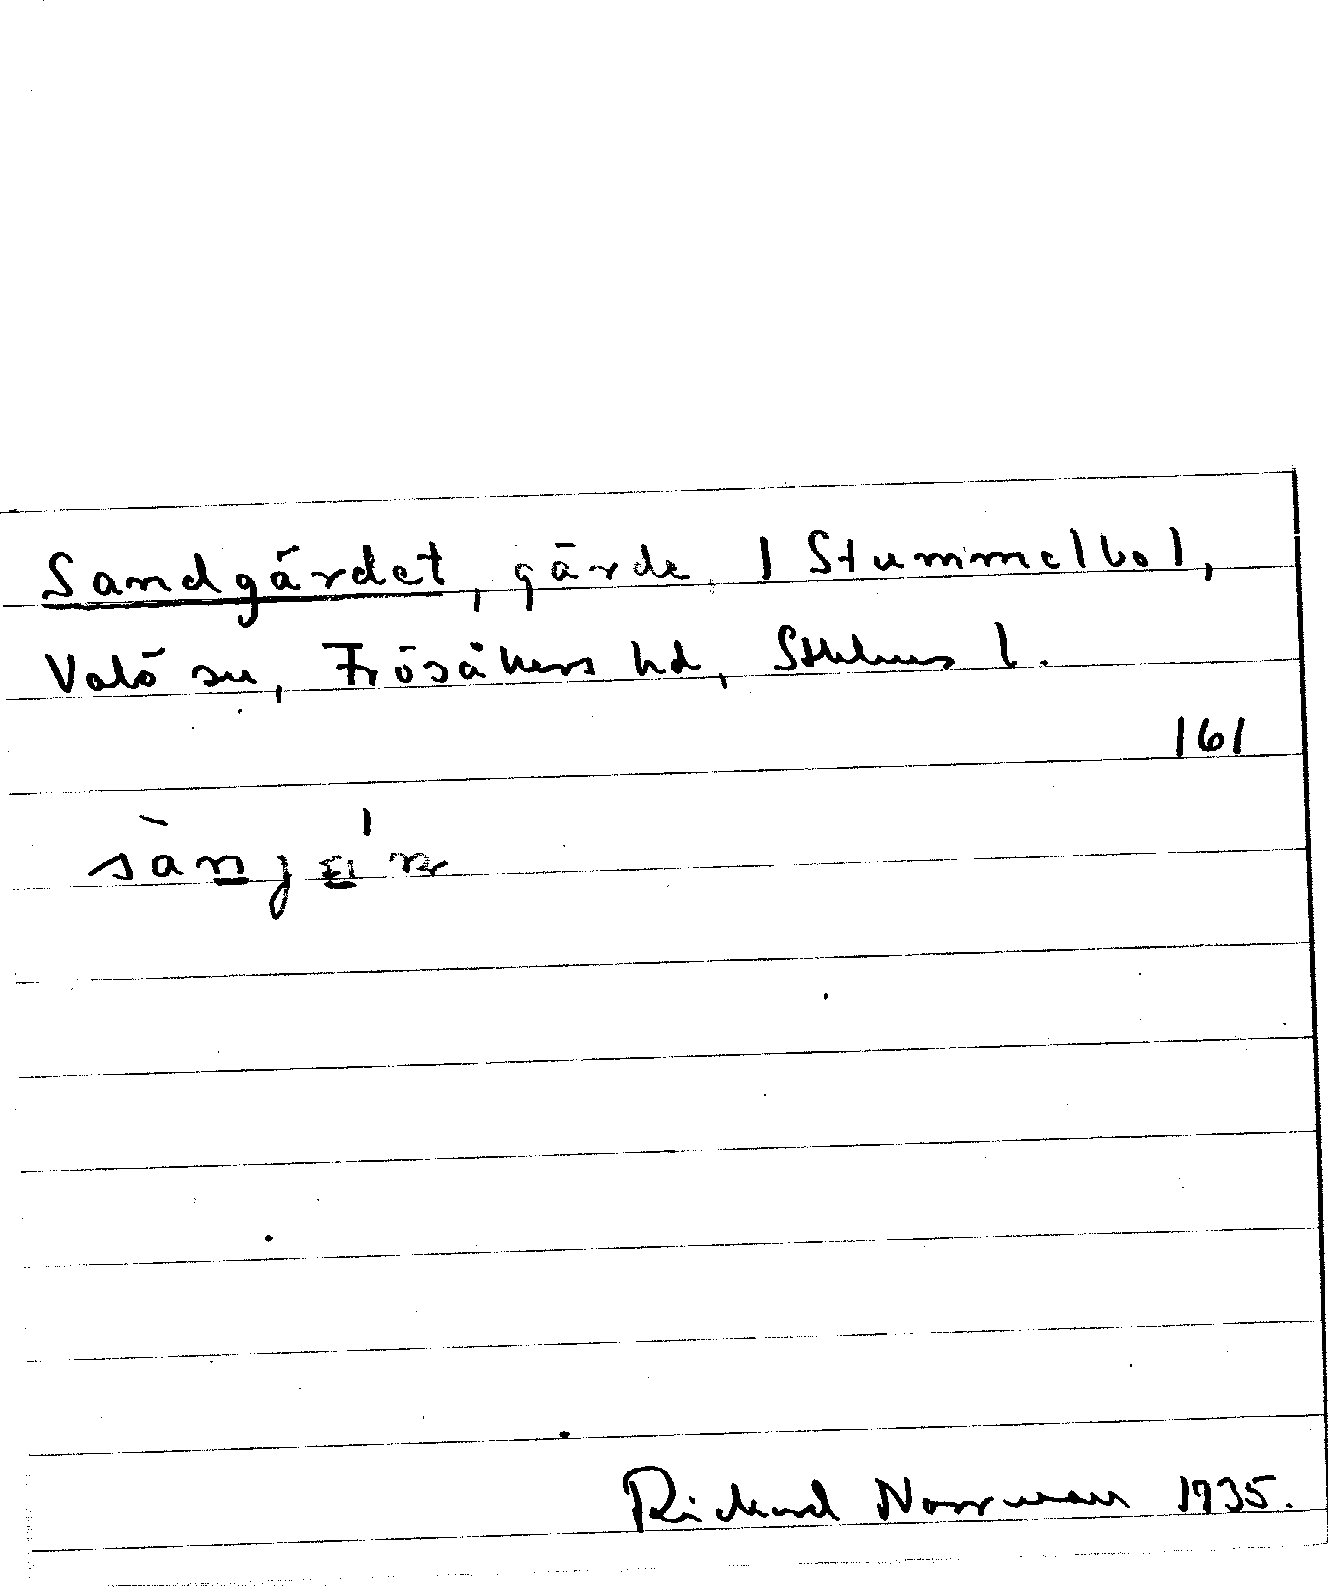 Sandgärdet, gärde i Stummelbol,
Valö sn, Frösåkers hd, Sthlms l.
161
Rickard Norrman 1935.